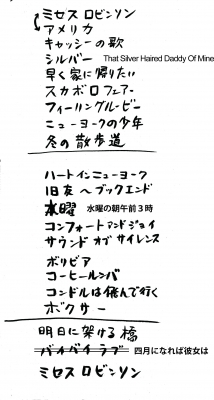 ミセス ロビンソン
アメリカ
キャッシーの歌
シルバー That Silver Haired Daddy Of Mine
早く家に帰りたい
スカボロフェアー
フィーリングルービー
ニューヨークの少年
冬の散歩道
ハートインニューヨーク
旧友へブックエンド
水曜 水曜の朝午前3時
コンフォートアンドジョイ
サウンド オブ サイレンス
ボリビア
コーヒールンバ
コンドルは飛んで行く
ボクサー
明日に架ける橋
バイバイラブ 四月になれば彼女は
ミセス ロビンソン